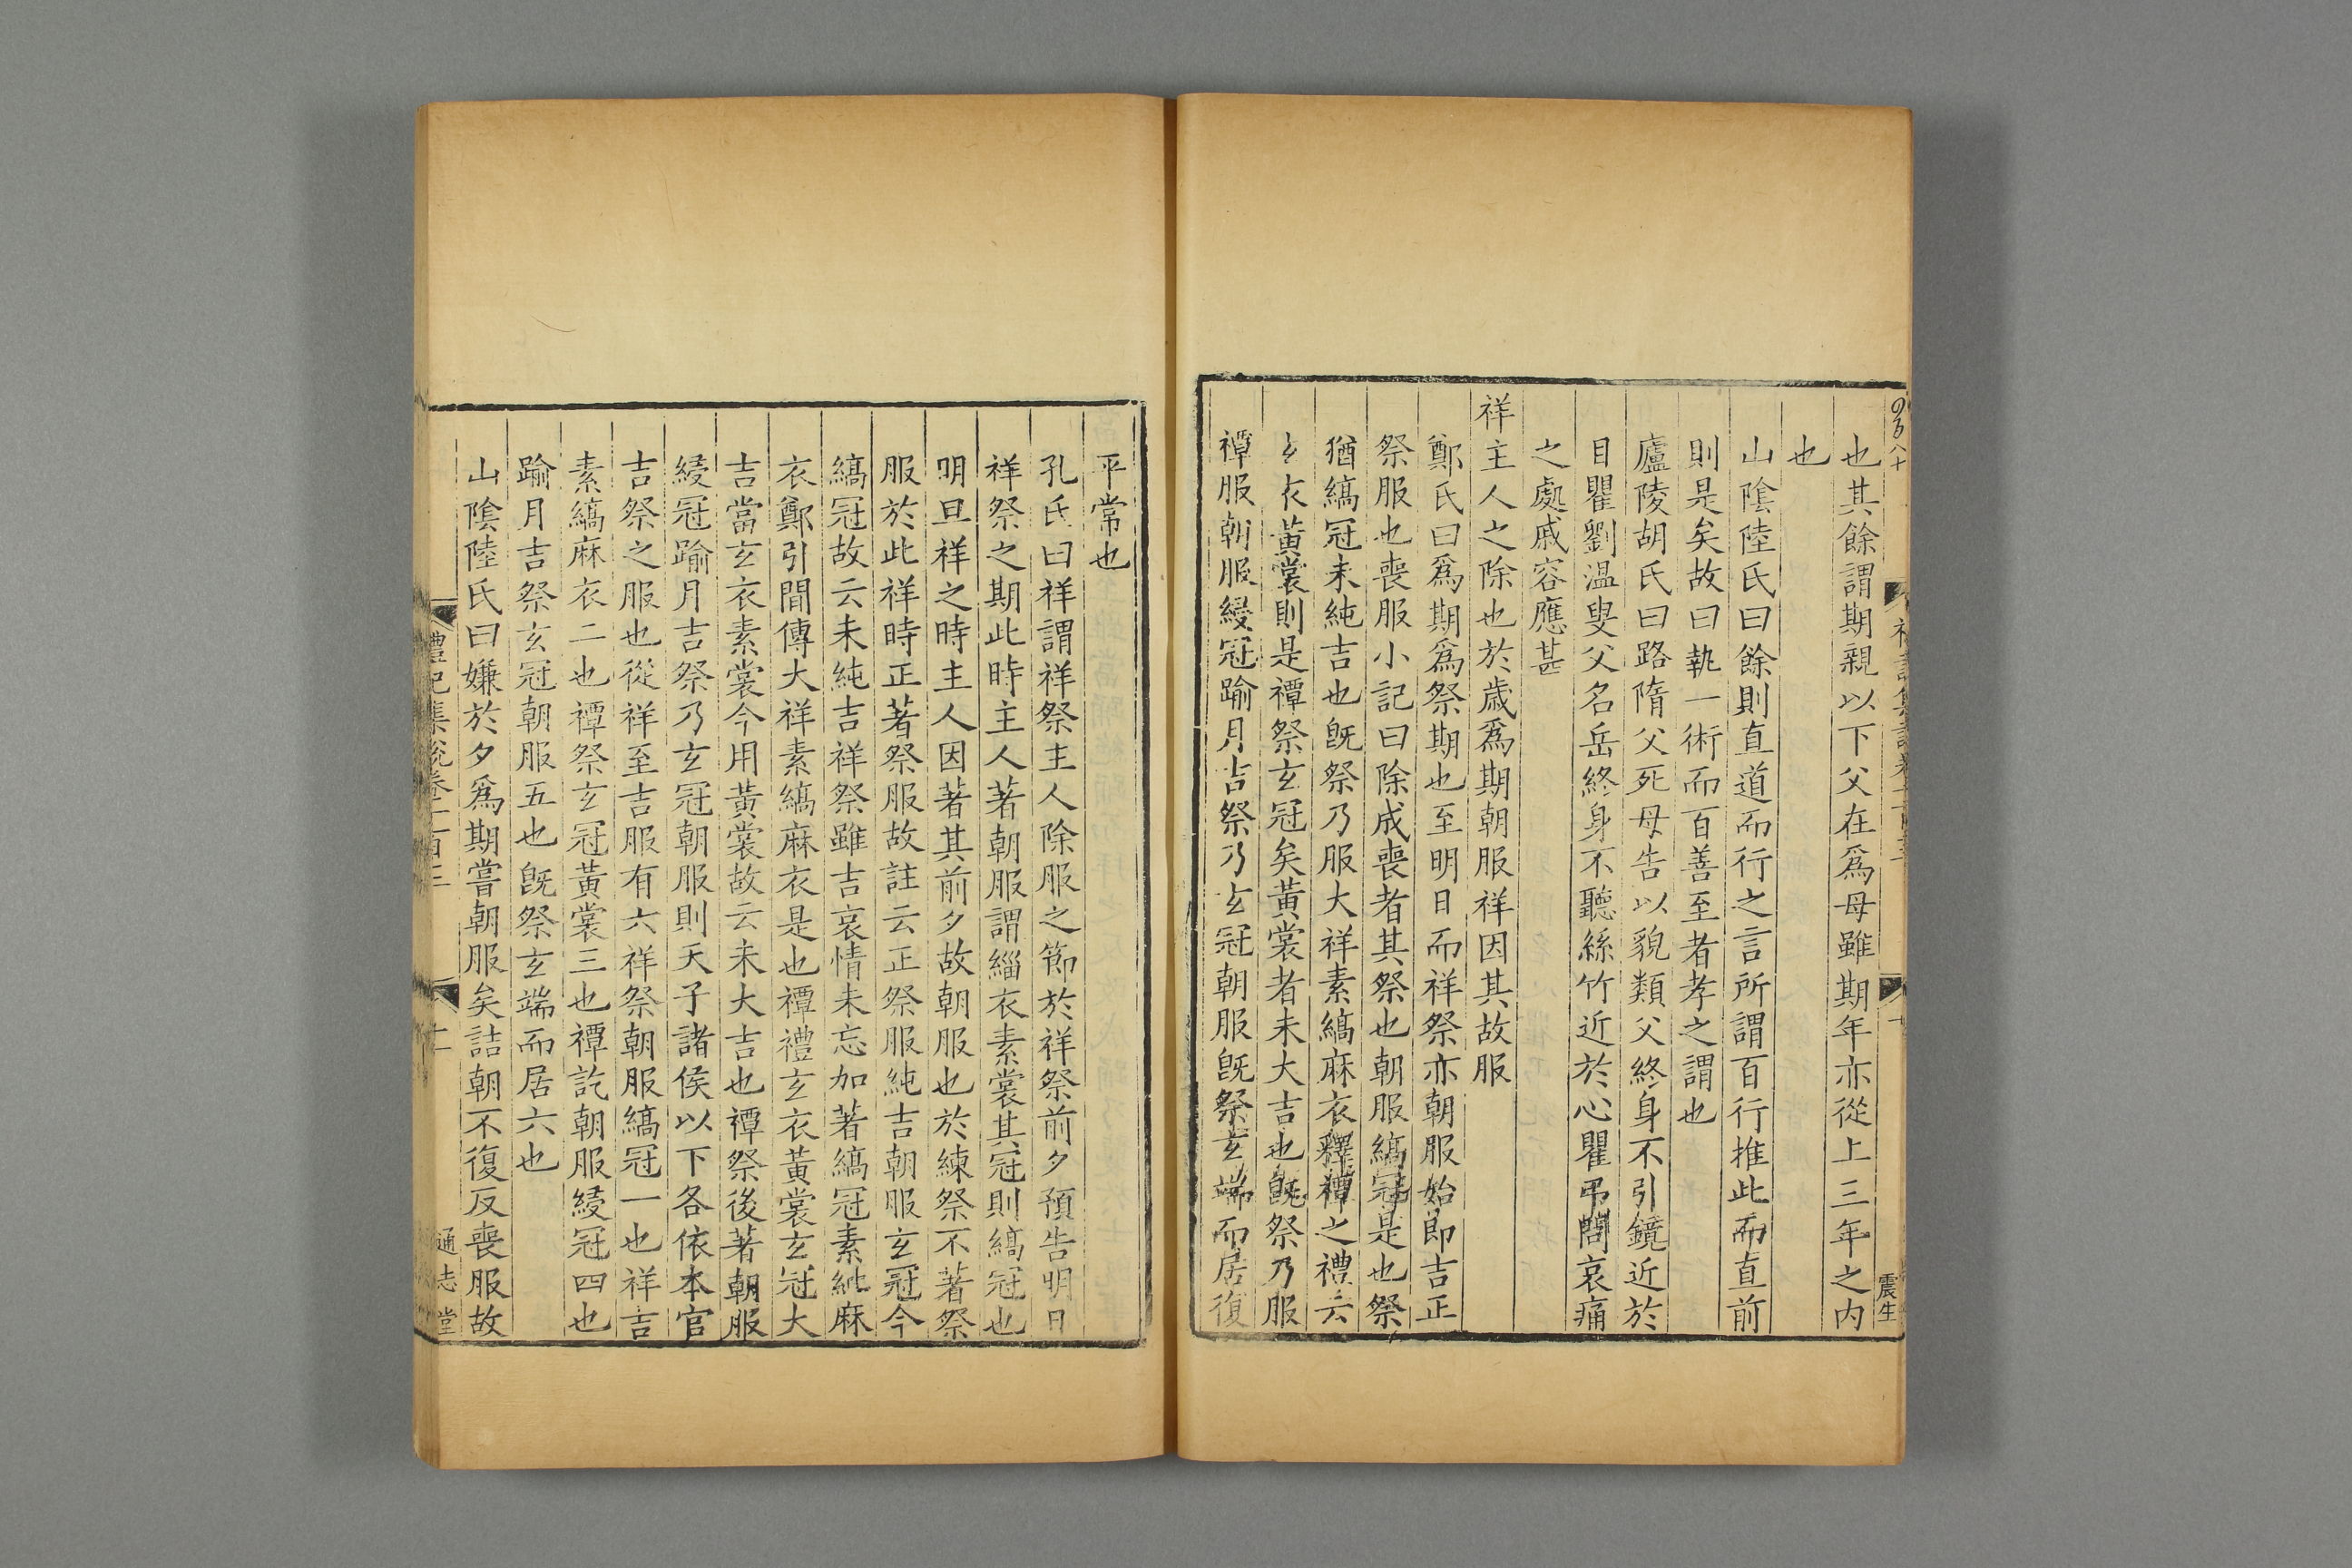 也其餘謂期親以下父在爲母雖期年亦從上三年之内
也
山隂陸氏曰餘則直道而行之言所謂百行推此而直前
則是矣故曰執一術而百善至者孝之謂也
廬陵胡氏曰路隋父死母告以貌類父終身不引鏡近於
目瞿劉温叟父名岳終身不聽絲竹近於心瞿弔問哀痛
之處戚容應甚
祥主人之除也於歳爲期朝服祥因其故服
鄭氏曰爲期爲祭期也至明日而祥祭亦朝服始即吉正
祭服也喪服小記曰除成喪者其祭也朝服縞冠是也祭
猶縞冠未純吉也旣祭乃服大祥素縞麻衣釋禫之禮云
玄衣黃裳則是禫祭玄冠矣黃裳者未大吉也旣祭乃服
禫服朝服綅冠踰月吉祭乃玄冠朝服旣祭玄端而居復
震生
平常也
孔氏曰祥謂祥祭主人除服之節於祥祭前夕預告明日
祥祭之期此時主人著朝服謂緇衣素裳其冠則縞冠也
明旦祥之時主人因著其前夕故朝服也於練祭不著祭
服於此祥時正著祭服故註云正祭服純吉朝服玄冠今
縞冠故云未純吉祥祭雖吉哀情未忘加著縞冠素紕麻
衣鄭引間傳大祥素縞麻衣是也禫禮玄衣黃裳玄冠大
吉當玄衣素裳今用黃裳故云未大吉也禫祭後著朝服
綅冠踰月吉祭乃玄冠朝服則天子諸侯以下各依本官
吉祭之服也從祥至吉服有六祥祭朝服縞冠一也祥吉
素縞麻衣二也禫祭玄冠黃裳三也禫訖朝服綅冠四也
踰月吉祭玄冠朝服五也旣祭玄端而居六也
山隂陸氏曰嫌於夕爲期嘗朝服矣詰朝不復反喪服故
禮記集說卷一百三
十一
通志堂